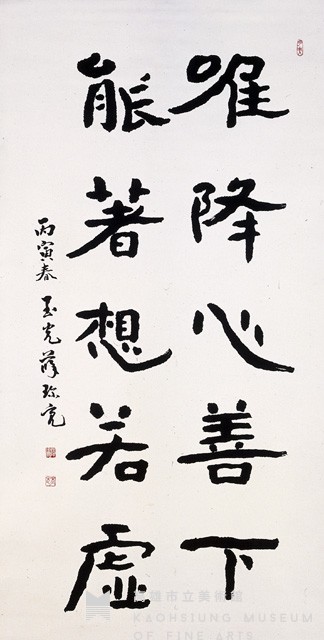 唯降心善下
能著想若虛
丙寅春 玉光薛珎亮
高雄市立美術館
KAOHSIUNG MUSEUM
OF FINE ARTS